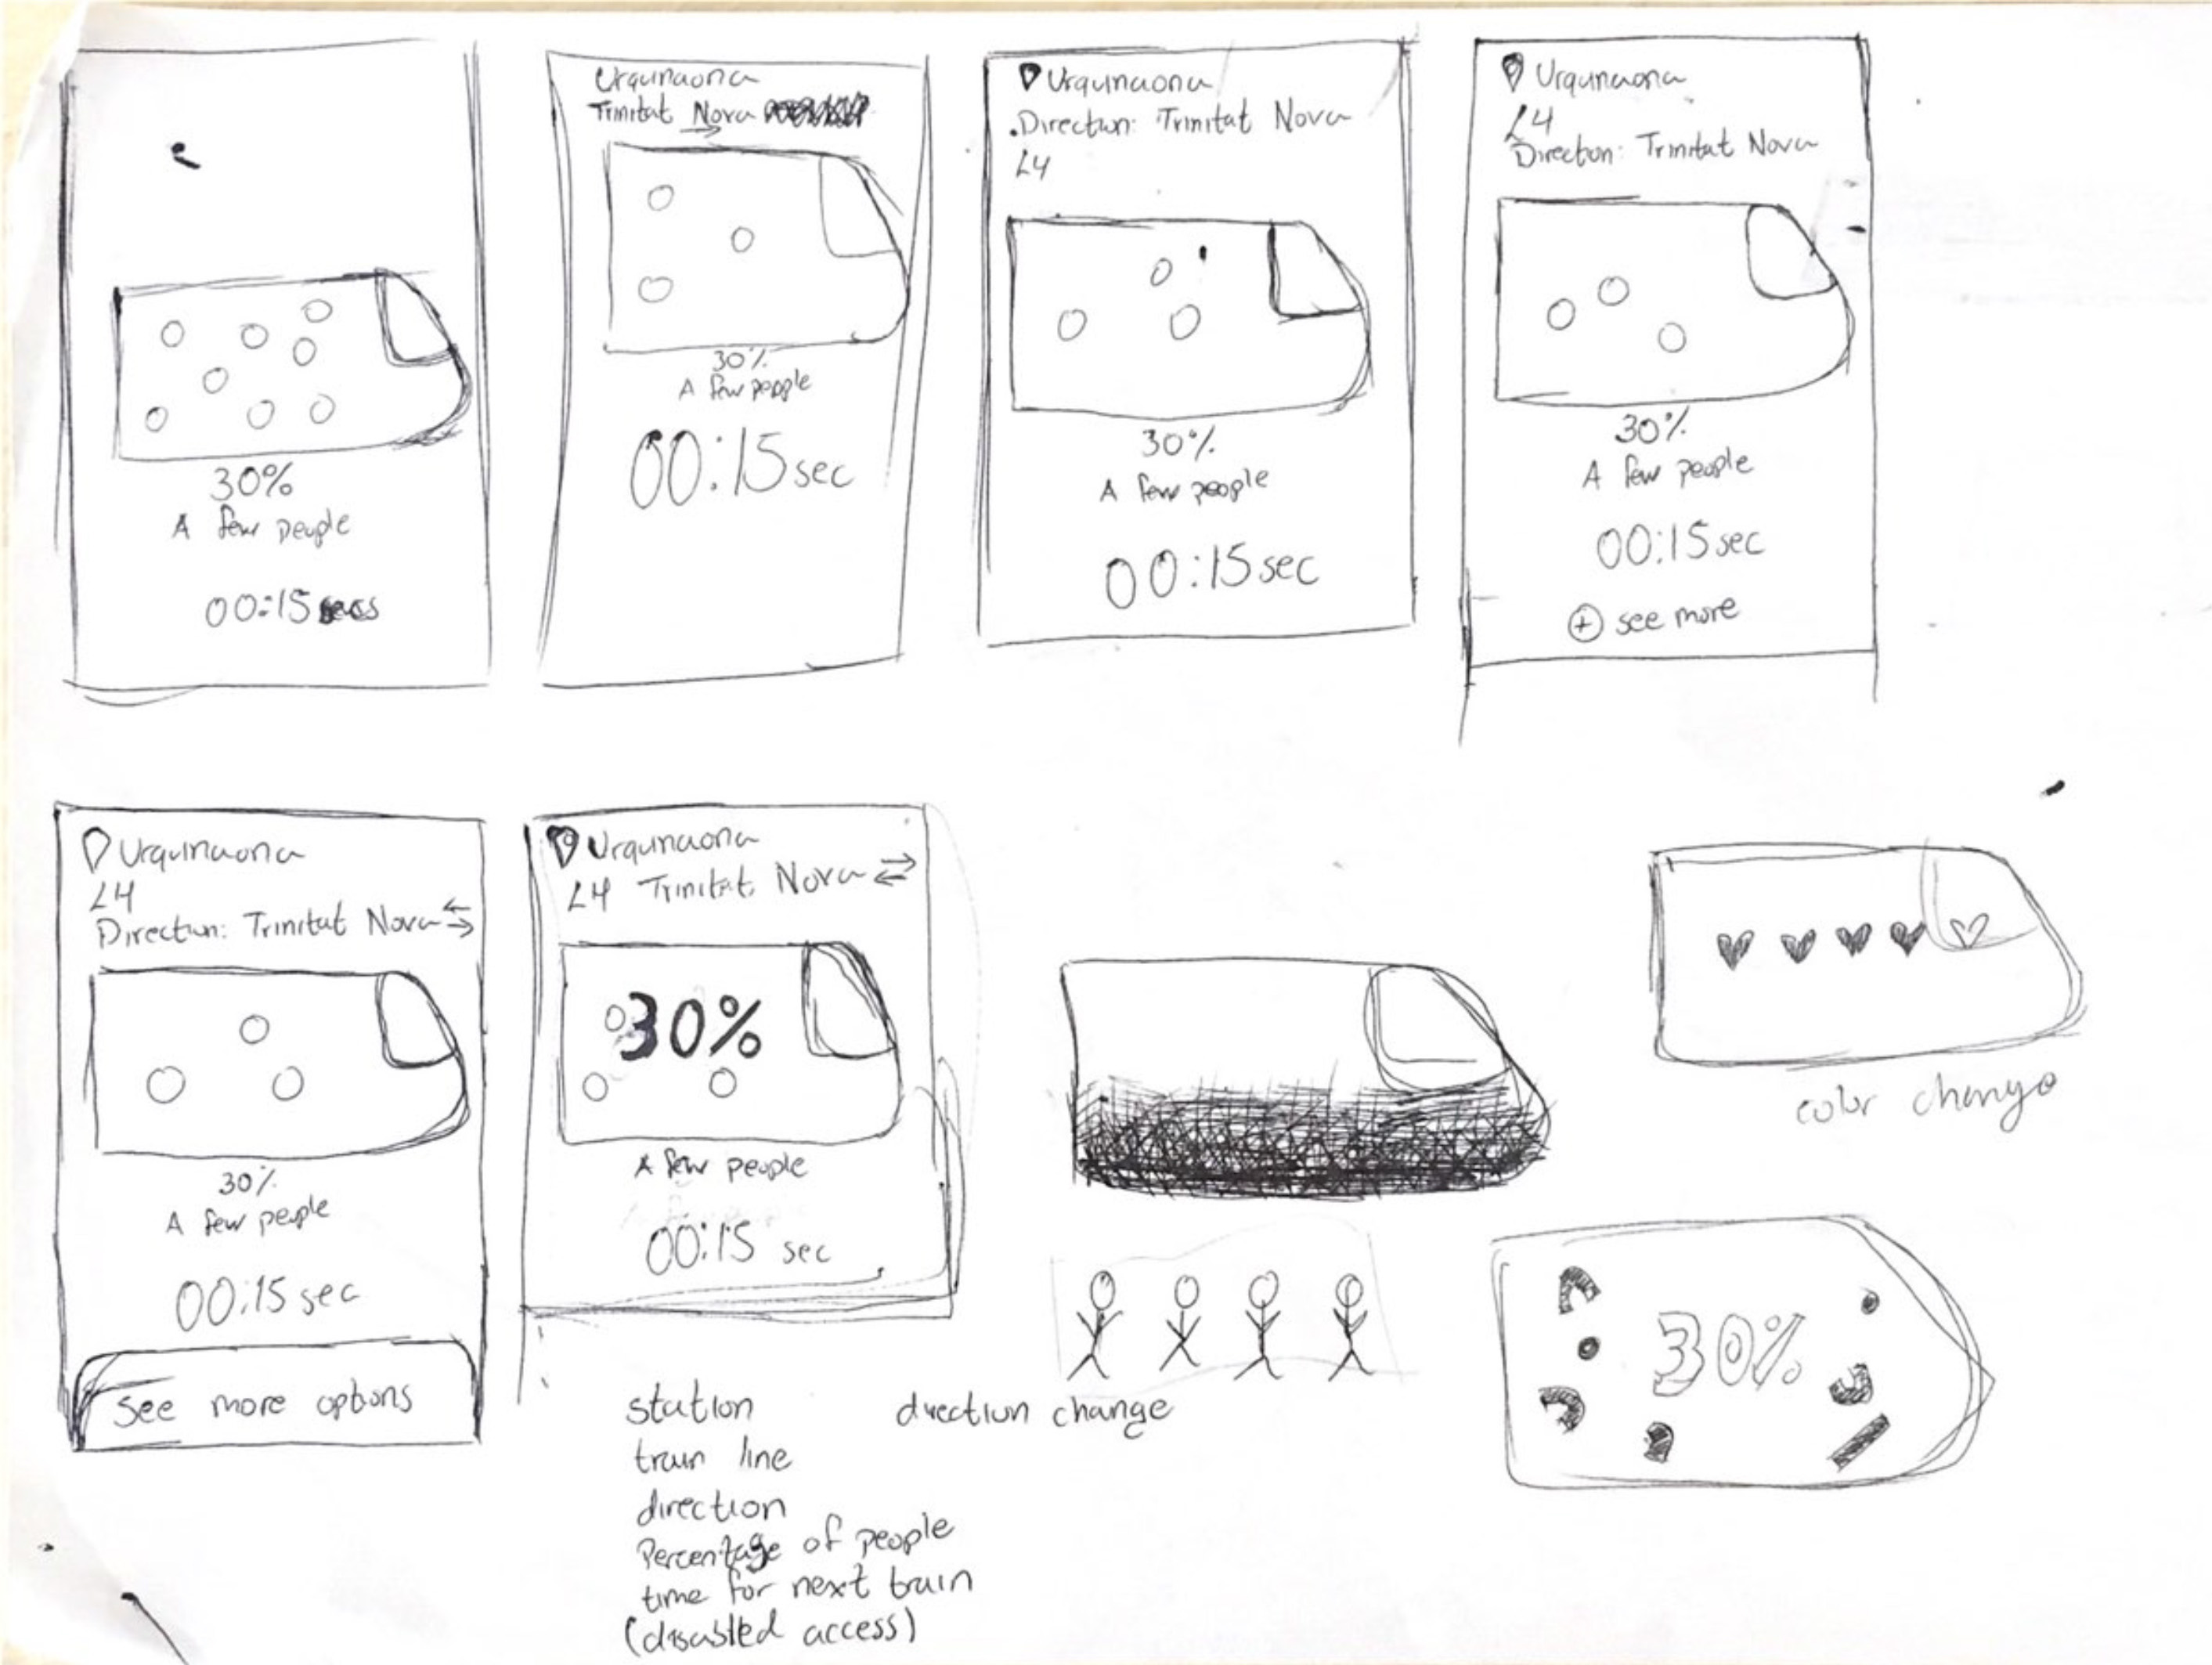 30%
A few people
00:15 secs
Urquinaona
Trinitat Nova
30%
A few people
00:15 sec
Urquinaona
Direction: Trinitat Nova
L4
30%
A few people
00:15 sec
Urquinaona
L4
Direction: Trinitat Nova
30%
A few people
00:15 sec
+ see more
Urquinaona
L4
Direction: Trinitat Nova
30%
A few people
00:15 sec
see more options
Urquinaona
L4 Trinitat Nova
30%
A few people
00:15 sec
color change
30%
station
train line
direction
Percentage of people
time for next train
(disabled access)
direction change